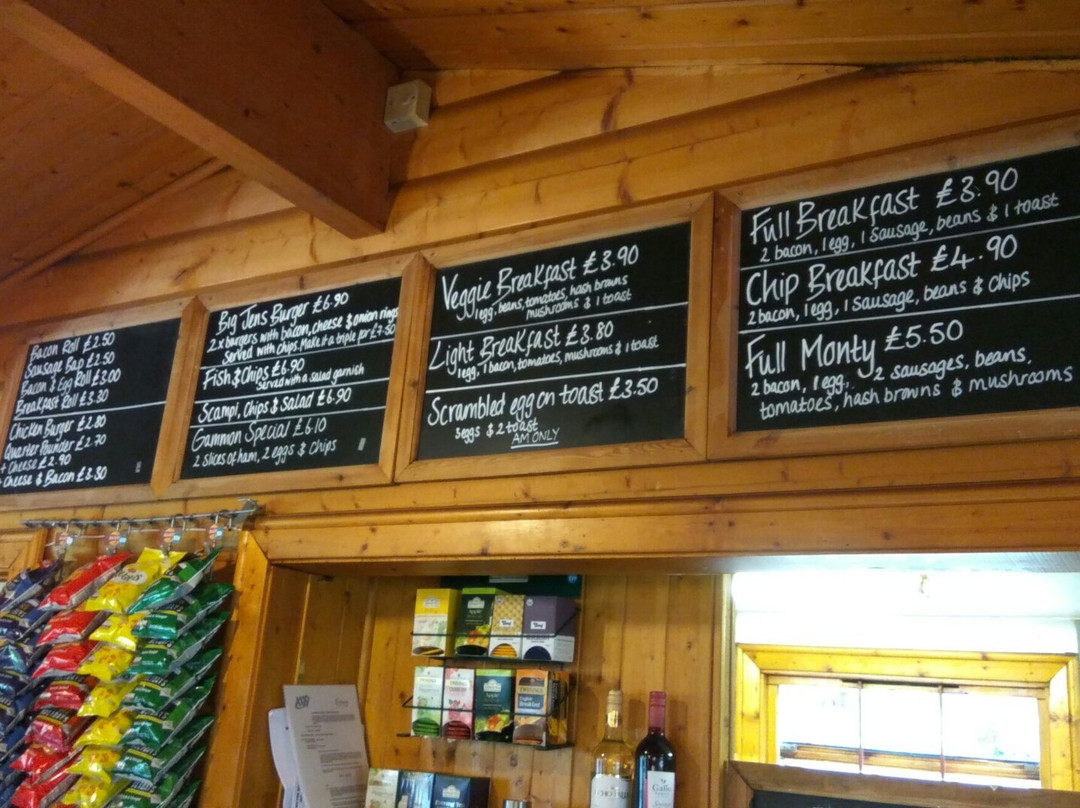 Bacon Roll £2.50
Sausage Bap £2.50
Bacon & Egg Roll £3.00
Breakfast Roll £3.30
Chicken Burger £2.80
Quarter Pounder £2.70
+ Cheese £2.90
+ Cheese & Bacon £3.30
Big Jens Burger £6.90
2 x burgers with bacon, cheese & onion rings
Served with chips. Make it a triple for £7.50
Fish & Chips £6.90
Served with a salad garnish
Scampi, Chips & Salad £6.90
Gammon Special £6.10
2 slices of ham, 2 eggs & chips
Veggie Breakfast £3.90
1 egg, beans, tomatoes, hash browns
mushrooms & 1 toast
Light Breakfast £3.80
1 egg, 1 bacon, tomatoes, mushrooms & 1 toast
Scrambled egg on toast £3.50
3 eggs & 2 toast
AM ONLY
Full Breakfast £3.90
2 bacon, 1 egg, 1 Sausage, beans & 1 toast
Chip Breakfast £4.90
2 bacon, 1 egg, 1 Sausage, beans & Chips
Full Monty £5.50
2 bacon, 1 egg, 2 sausages, beans,
tomatoes, hash browns & mushrooms